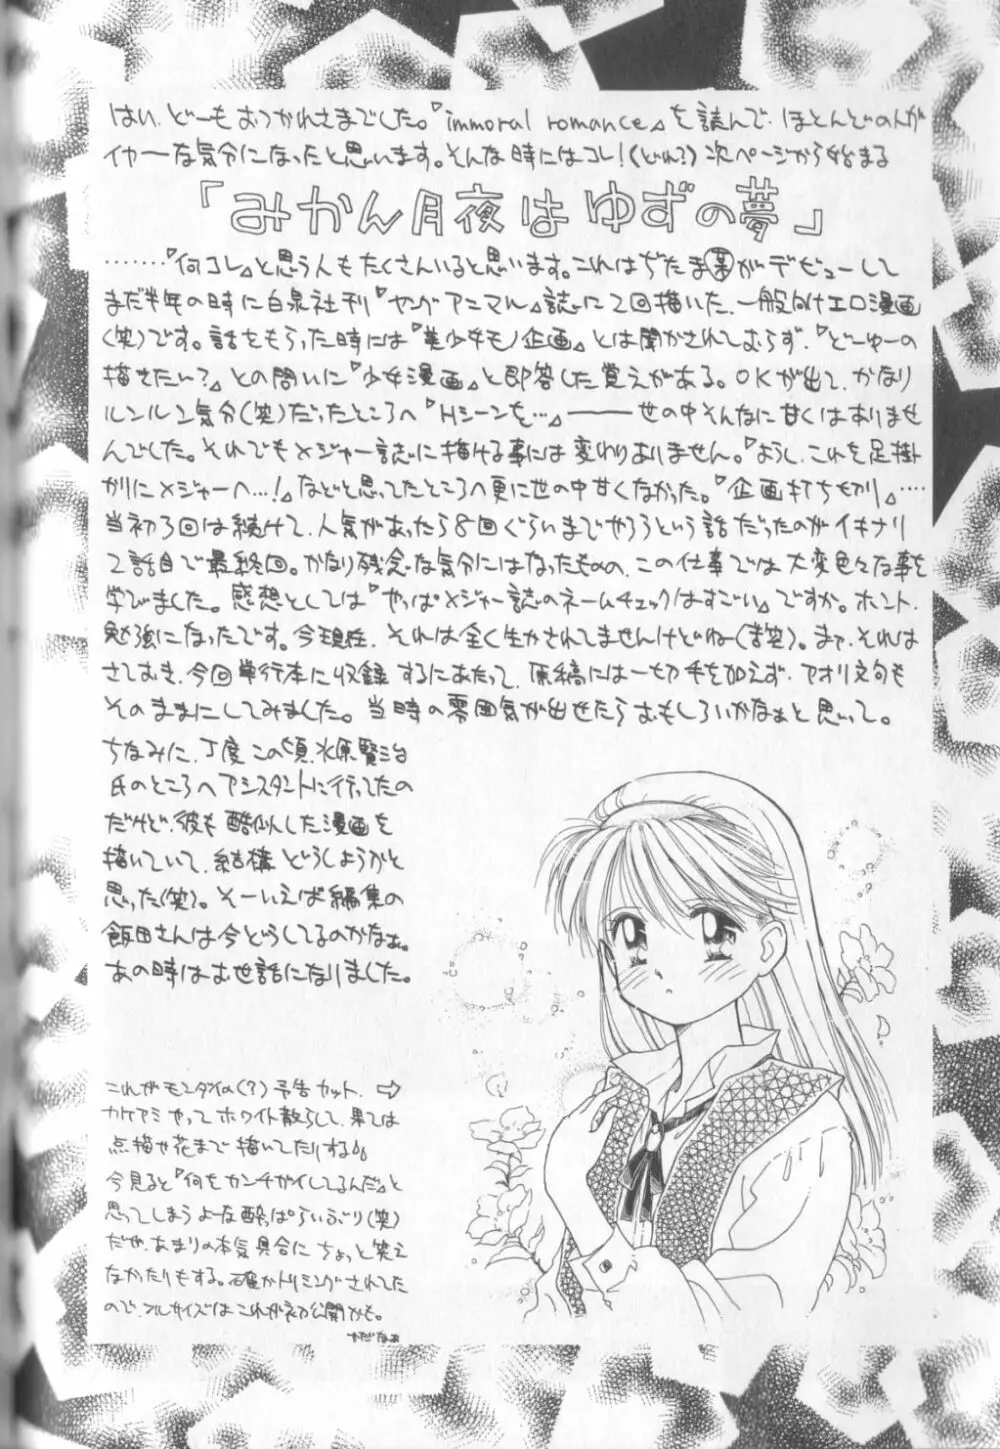 はい、どーもおつかれさまでした。『immoral romance』を読んで、ほとんどの人が
イヤーな気分になったと思います。そんな時にはコレ!(どれ?)次ページから始まる
「みかん月夜は ゆずの夢」
……『何コレ』と思う人もたくさんいると思います。これはぢたま(某)がデビューして
まだ半年の時に白泉社刊『ヤングアニマル』誌に2回描いた、一般向けエロ漫画
(笑)です。話をもらった時には『美少女モノ企画』とは聞かされておらず、『どーゆーの
描きたい?』との問いに『少女漫画』と即答した覚えがある。OKが出て、かなり
ルンルン気分(笑)だったところへ『Hシーンを…』――世の中そんなに甘くはありませ
んでした。それでもメジャー誌に描ける事には変わりありません。『ようし、これを足掛
かりにメジャーへ…!』などと思ってたところへ更に世の中甘くなかった。『企画打ち切り』‥‥
当初3回は続けて、人気があったら8回ぐらいまでやろうという話だったのがイキナリ
2話目で最終回。かなり残念な気分にはなったものの、この仕事では大変色々な事を
学びました。感想としては『やっぱメジャー誌のネームチェックはすごい』ですか。ホント、
勉強になったです。今現在、それは全く生かされてませんけどね(苦笑)。まァ、それは
さておき、今回単行本に収録するにあたって、原稿には一切手を加えず、アオリ文句も
そのままにしてみました。当時の雰囲気が出せたらおもしろいかなぁと思って。
ちなみに、丁度この頃、水原賢治
氏のところへアシスタントに行ってたの
だけど、彼も酷似した漫画を
描いていて、結構どうしようかと
思った(笑)。そーいえば編集の
飯田さんは今どうしてるのかなぁ。
あの時はお世話になりました。
これがモンダイの(?)予告カット。⇨
カケアミやってホワイト散らして、果ては
点描や花まで描いてたりする。
今見ると『何をカンチガイしてるんだ』と
思ってしまうよーな酔っぱらいぶり(笑)
だが、あまりの本気具合にちょっと笑え
なかったりもする。確かトリミングされてた
ので、フルサイズはこれが初公開かも。
かだなぁ